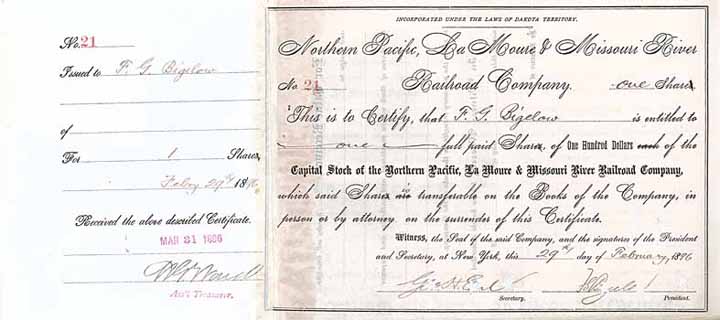 No. 21
Issued to F. G. Bigelow
of
For 1 Shares,
Feby 29th 1896
Received the above described Certificate.
MAR 31 1896
Ass't Treasurer.
INCORPORATED UNDER THE LAWS OF DAKOTA TERRITORY.
Northern Pacific, La Moure & Missouri River
No 21 Railroad Company. one Shares
This is to Certify, that F. G. Bigelow is entitled to
one full paid Shares, of One Hundred Dollars each of the
Capital Stock of the Northern Pacific, La Moure & Missouri River Railroad Company,
which said Shares are transferable on the Books of the Company, in
person or by attorney on the surrender of this Certificate.
Witness, the Seal of the said Company, and the signatures of the President
and Secretary, at New York, this 29th day of February, 1896
Geo H. Earl
Secretary. President.